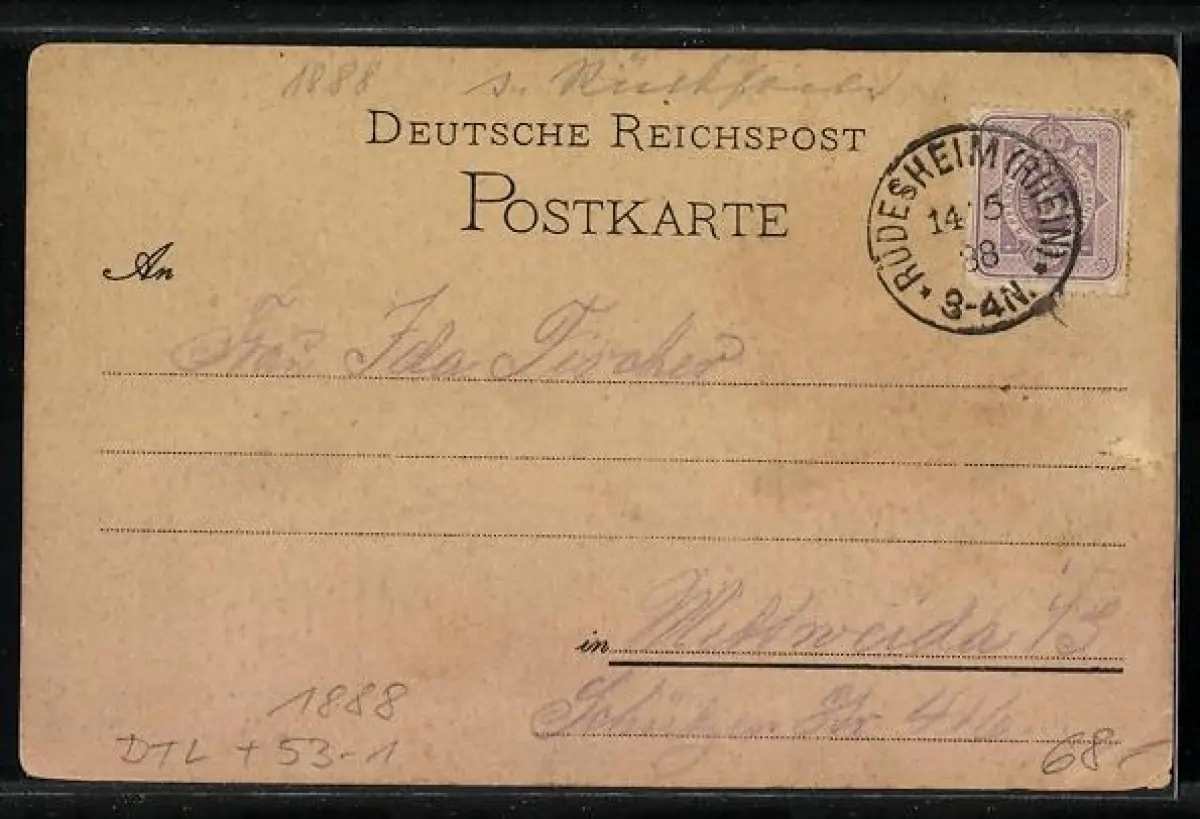 1888 s. Rückseite
DEUTSCHE REICHSPOST
POSTKARTE
RÜDESHEIM (RHEIN)
14 5
88
3-4N.
An
Ida Fischer
in Mittweida i/S
Schützen Str
1888
DTL + 53-1
68.-